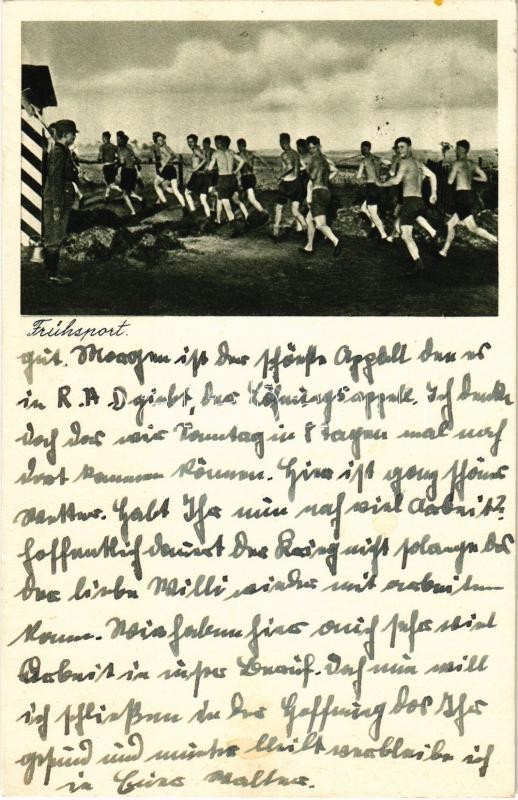 Frühsport.
gut. Morgen ist der schönste Appell den es
in R.A.D giebt, der Löhnungsappell. Ich denke
doch das wir Sonntag in 8 tagen mal nach
dort kommen können. Hier ist ganz schönes
Wetter. Habt Ihr nun noch viel Arbeit?
Hoffentlich dauert der Krieg nicht solange das
der liebe Willi wieder mit arbeiten
kann. Wir haben hier auch sehr viel
Arbeit in unser Beruf. Doch nun will
ich schließen in der Hoffnung das Ihr
gesund und munter bleibt verbleibe ich
Euer Walter.